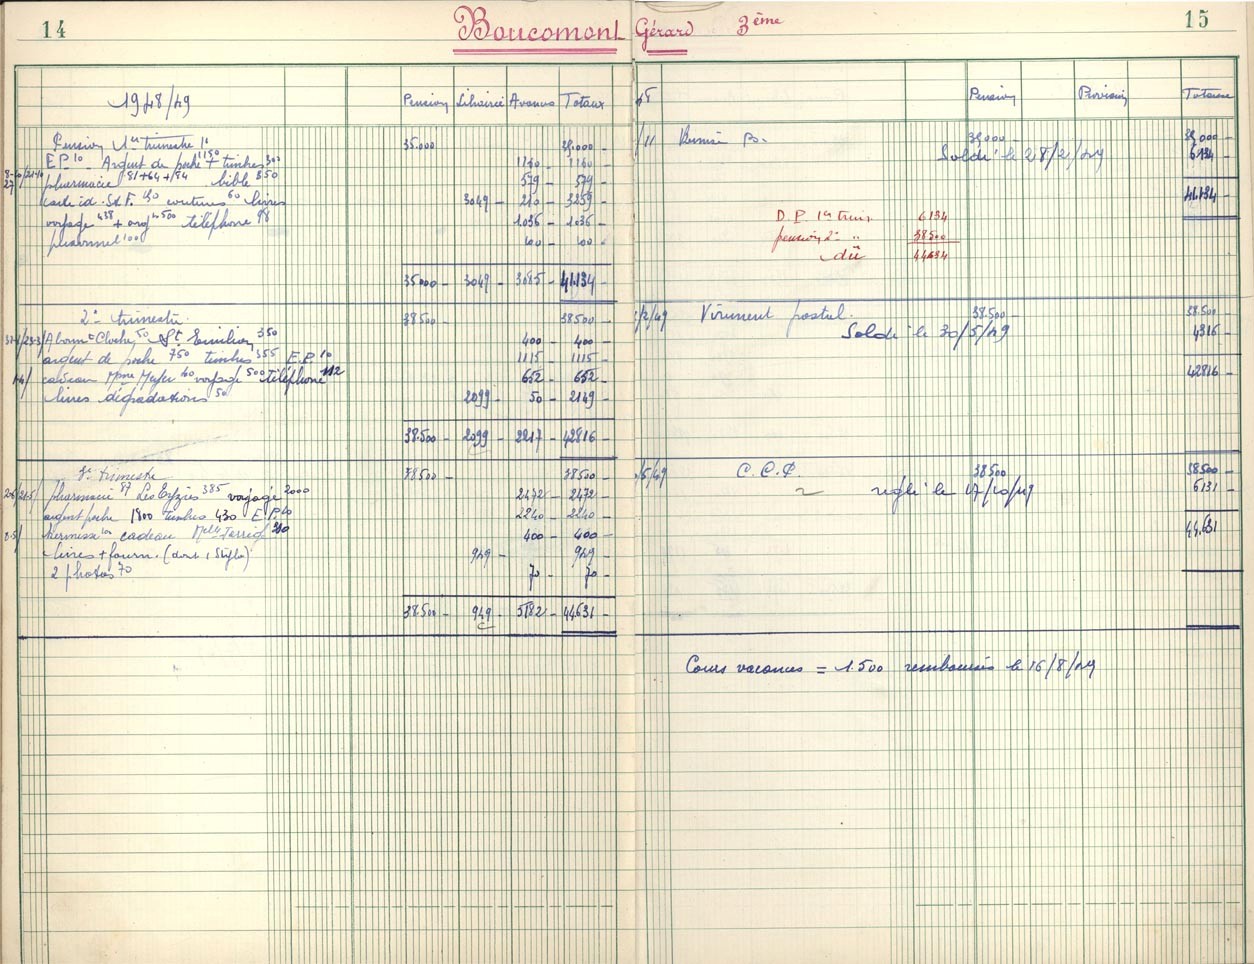 14
Boucomont Gérard 3ème
15
1948/49 Pension Librairie Avances Totaux
Pension 1er trimestre 35.000 35.000
E.P 10 Argent de poche 1150 + timbres 300 1160 1160
pharmacie 81+64+84 bible 350 579 579
carte id. 150 coutures 60 livres 3049 210 3259
voyage 438 + arg 500 téléphone 98 1.036 1.036
100
35.000 3049 3085 41.134
2e trimestre 38.500 38.500
Abonnt Cloche 50 St Emilion 350 400 400
argent de poche 750 timbres 355 E.P 10 1115 1115
cadeau Mme Meyer 40 voyage 500 téléphone 112 652 652
livres dégradations 50 2099 50 2149
38.500 2099 2217 42816
3e trimestre 38500 38.500
pharmacie 87 Les Eyzies 385 voyage 2000 2472 2472
argent poche 1800 timbres 430 E.P. 10 2240 2240
kermesse cadeau Melle 400 400
livres + fourn. (dont 1 Stylo) 949 949
2 photos 70 70 70
38.500 949 5182 44631
48 Pension Provision Totaux
/11
Soldé le 28/2/49 6134
41.134
D. P. 1er trim. 6.134
pension 2e " 38500
dû 44634
/2/49 Virement postal. 38.500 38.500
Soldé le 30/5/49 4316
42816
/5/49 C.C.P. 38500 38500
réglé le 17/10/49 6131
44.631
Cours vacances = 1.500 remboursés le 16/8/49